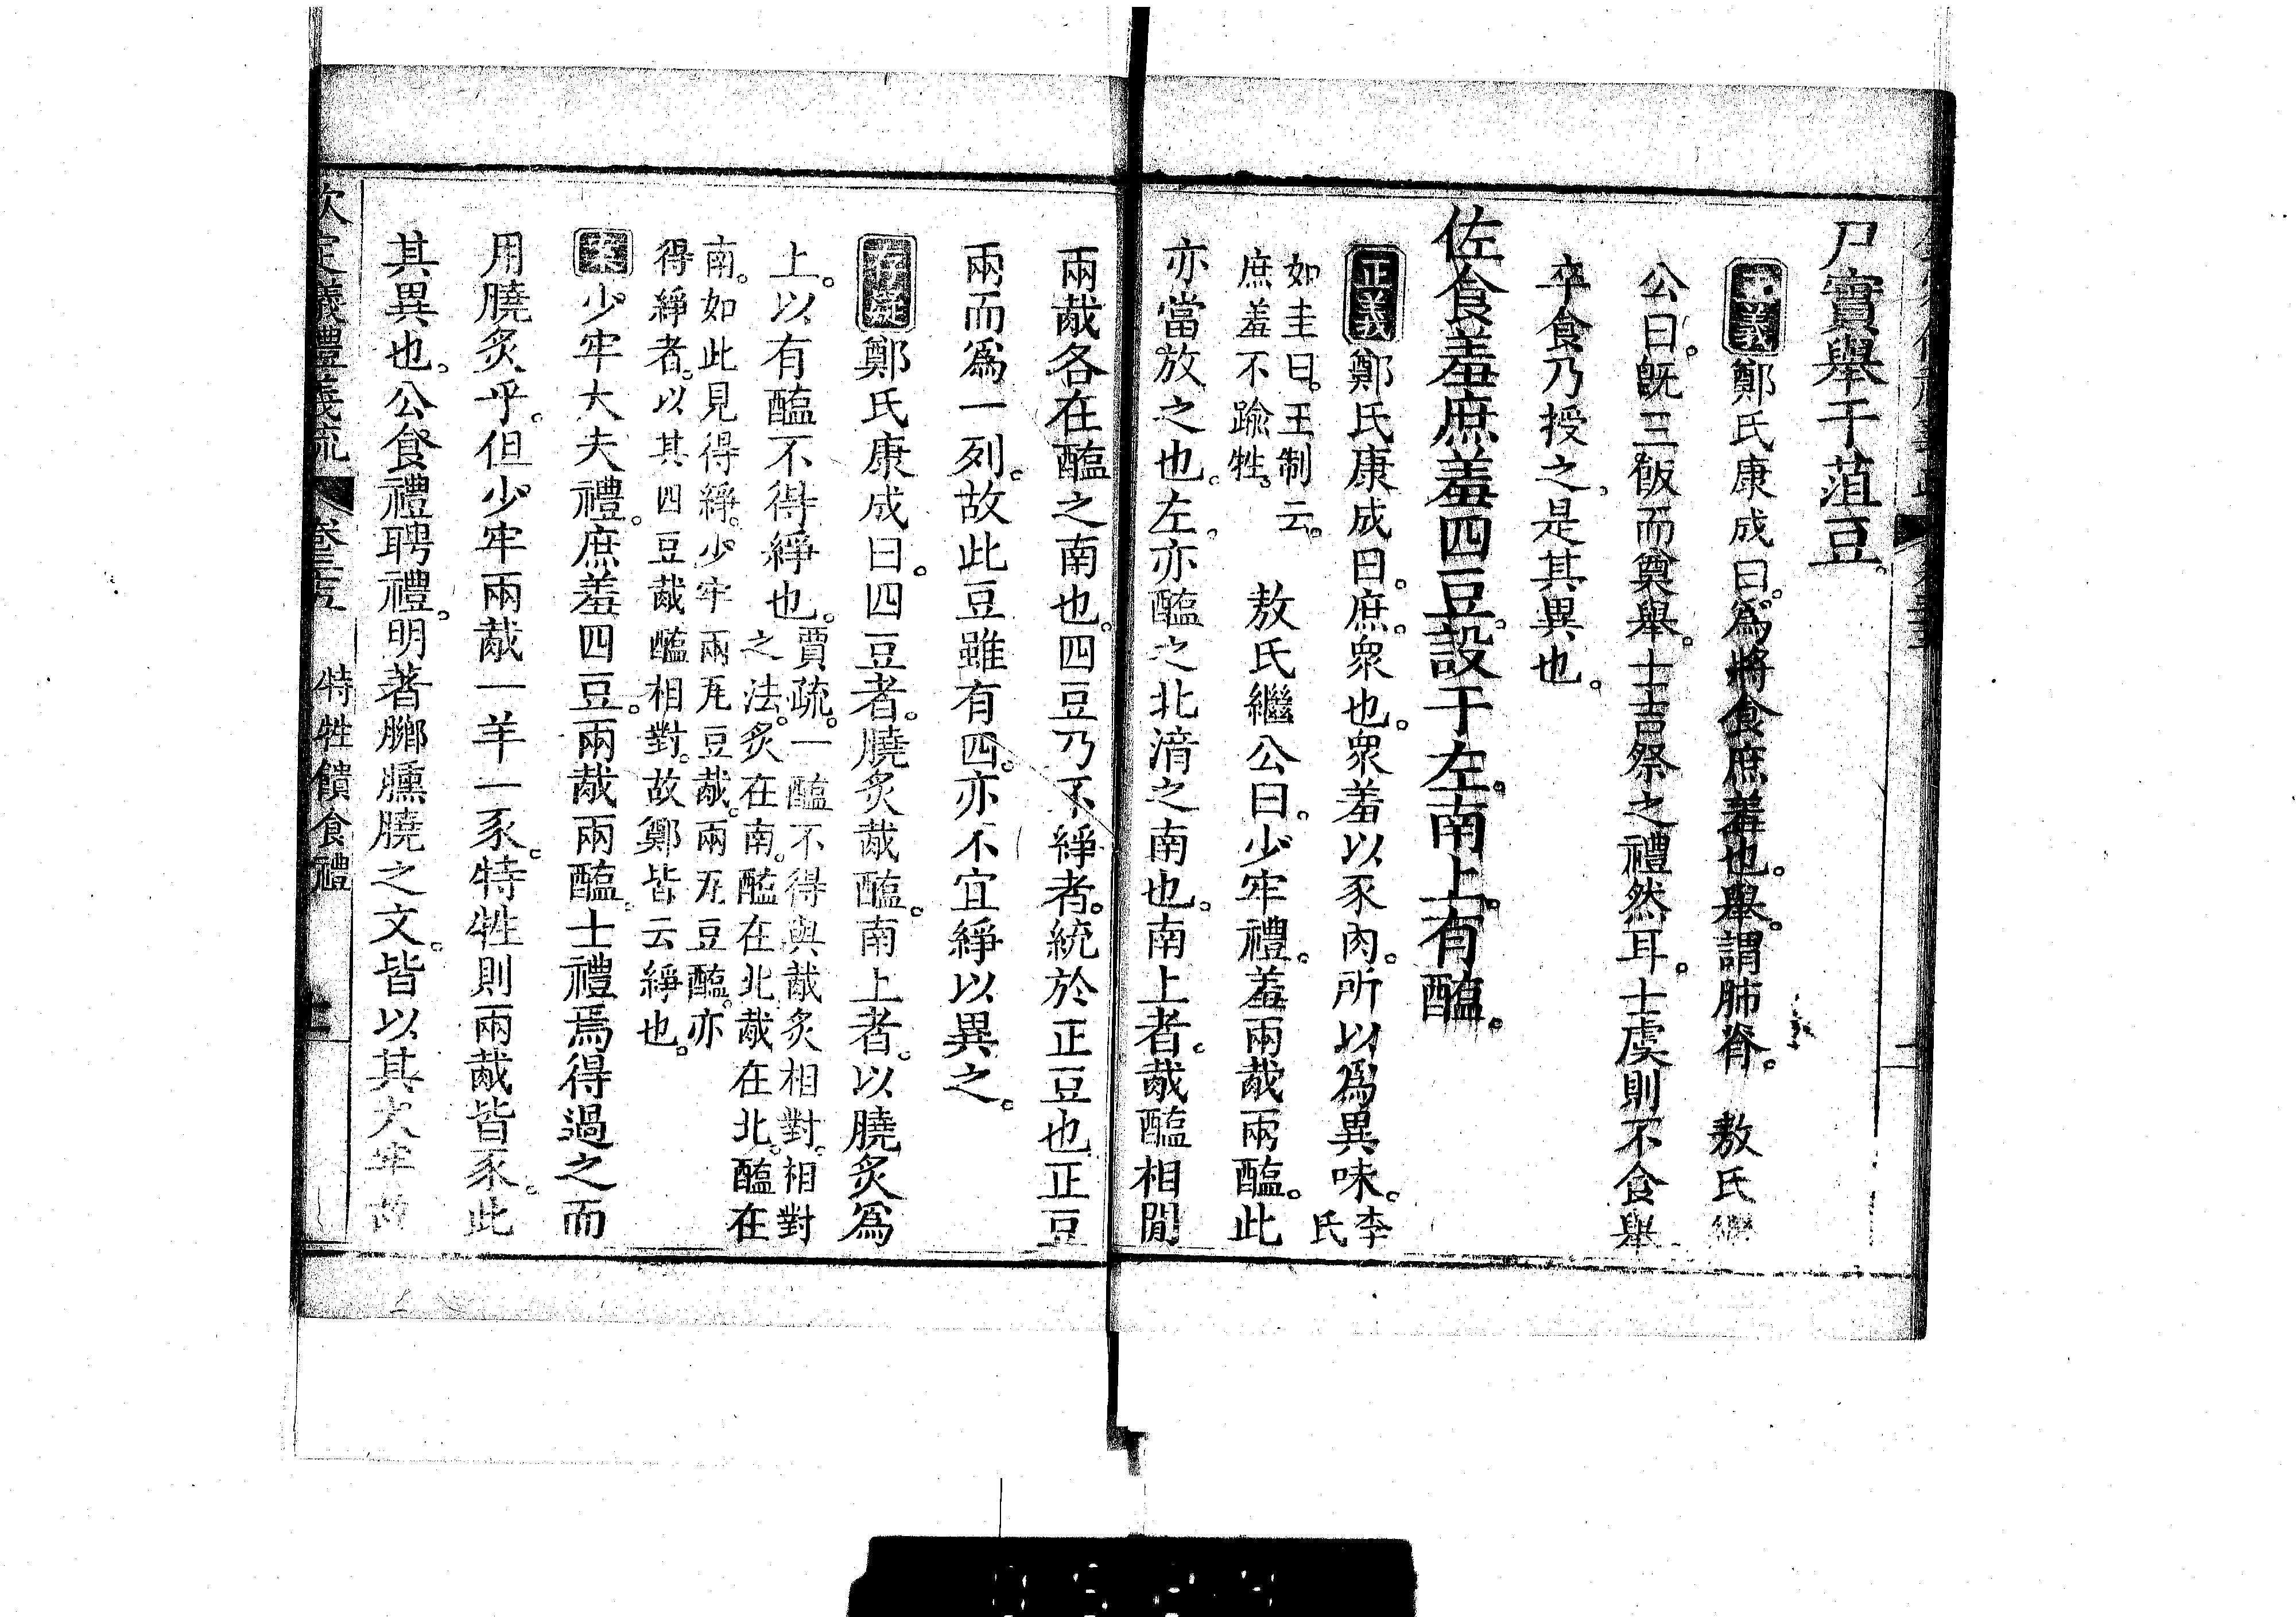 尸實舉于菹豆。
正義鄭氏康成曰。爲將食庶羞也。舉。謂肺脊。 敖氏繼
公曰。旣三飯而奠舉。士吉祭之禮然耳。士虞則不食舉
卒食乃授之。是其異也。
佐食羞庶羞四豆。設于左。南上。有醢。
正義鄭氏康成曰。庶。衆也。衆羞以豕肉。所以爲異味。李氏
如圭曰。王制云。
庶羞不踰牲。 敖氏繼公曰。少牢禮。羞兩胾兩醢。此
亦當放之也。左。亦醢之北湇之南也。南上者。胾醢相閒
兩胾各在醢之南也。四豆乃不綪者。統於正豆也正豆
兩而爲一列。故此豆雖有四。亦不宜綪以異之。
存疑鄭氏康成曰。四豆者。膮炙胾醢。南上者。以膮炙爲
上。以有醢不得綪也。賈疏。一醢不得與胾炙相對。相對
之法。炙在南。醢在北胾在北。醢在
南。如此見得綪。少牢兩瓦豆胾。兩瓦豆醢。亦
得綪者。以其四豆胾醢相對。故鄭皆云綪也。
案少牢大夫禮。庶羞四豆。兩胾兩醢。士禮焉得過之而
用膮炙乎。但少牢兩胾一羊一豕。特牲則兩胾皆豕。此
其異也。公食禮聘禮。明著膷臐膮之文。皆以其大牢故
欽定儀禮義疏 卷三十五 特牲饋食禮